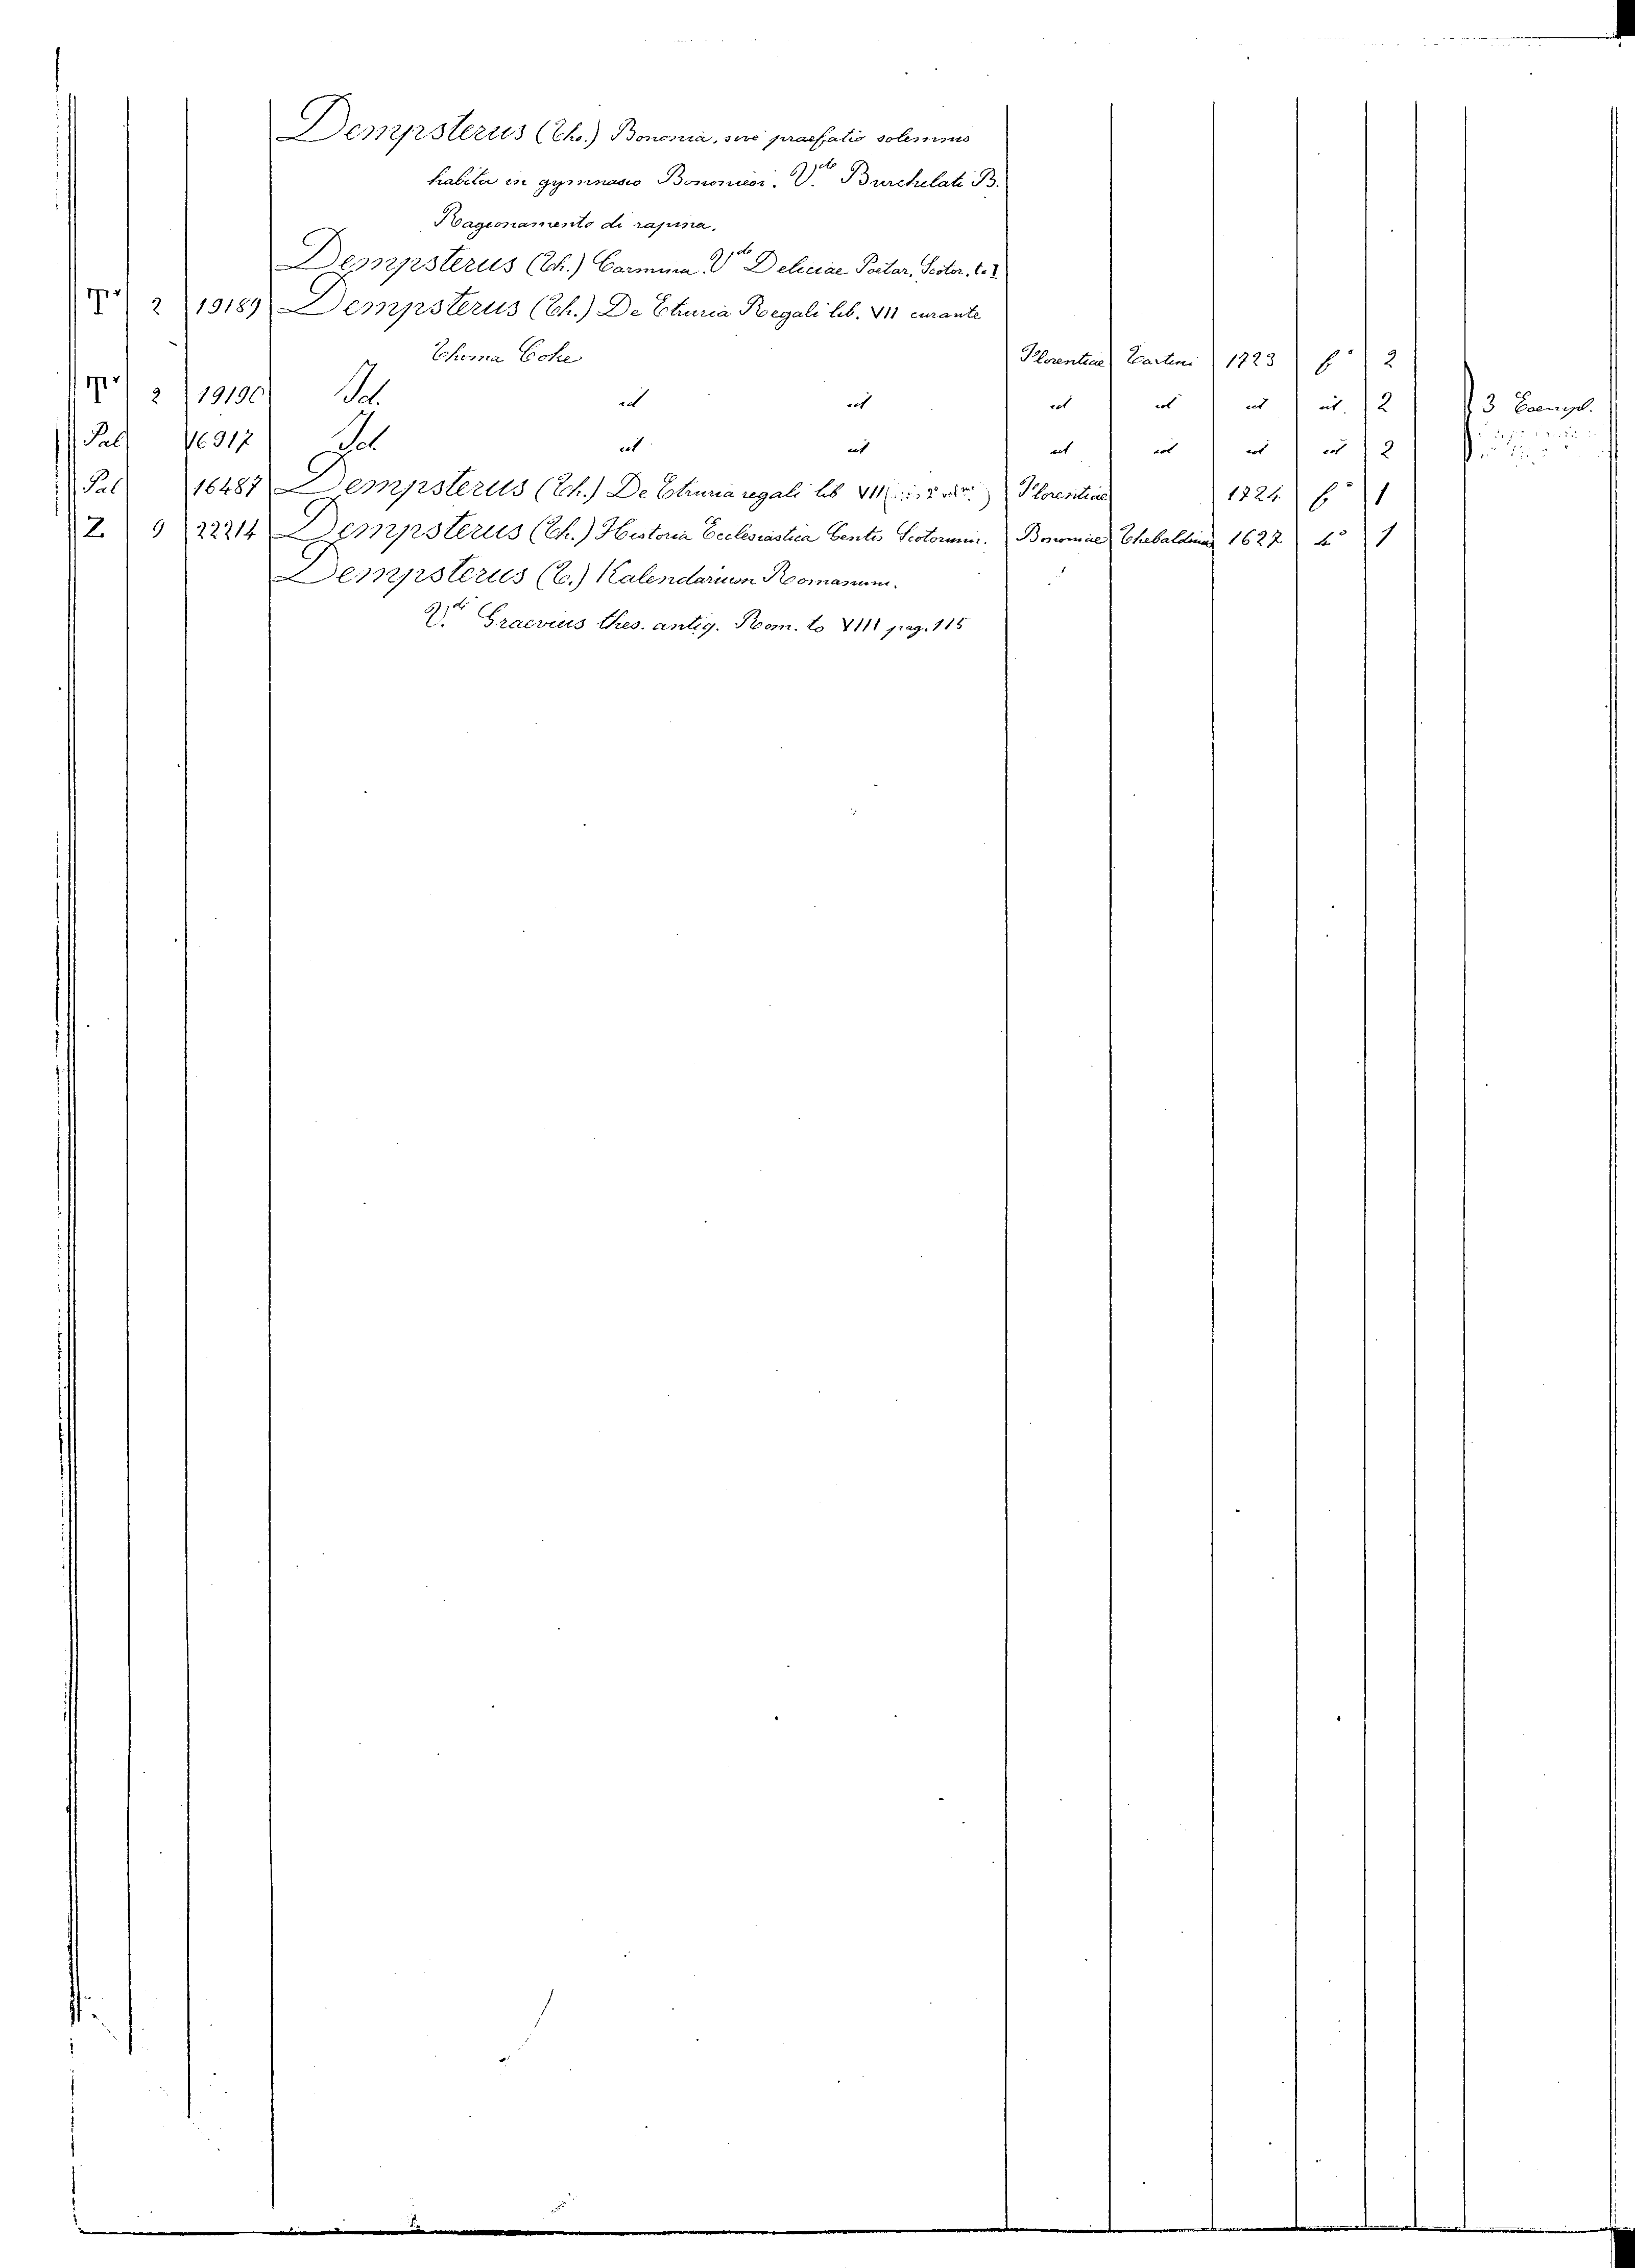 Dempsterus (Tho.) Bononia, sive praefatio solemnis
habita in gymnasio Bononiesi. V.do Burchelati B.
Ragionamento di rapina.
Dempsterus (Th.) Carmina V.do Deliciae Poetar. Scotor. to I
2 19189 Dempsterus (Th.) De Etruria Regali lib. VII curante
Thoma Coke Florentiae Tartini 1723 f° 2
2 19190 Id. id id id id id id. 2 3 Esempl.
Pal 16917 Id. id id id id id id 2
Pal 16487 Dempsterus (Th.) De Etruria regali lib VII Florentiae 1724 f° 1
Z. 9 22214 Dempsterus (Th.) Historia Ecclesiastica Gentis Scotorum. Bononiae Thebaldinus 1627 4° 1
Dempsterus (T.) Kalendarium Romanum.
V.di Graevius thes. antiq. Rom. to VIII pag. 115